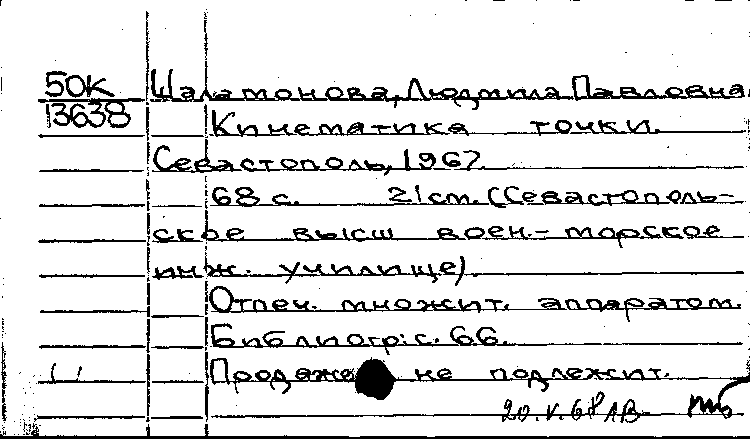 50К Шаламонова, Людмила Павловна
13638 Кинематика точки.
Севастополь, 1967.
68 с. 21 см. (Севастополь-
ское высш воен.-морское
инж. училище).
Отпеч. множит. аппаратом.
Библиогр: с. 66.
Продаже не подлежит.
20.V.68 ЛВ